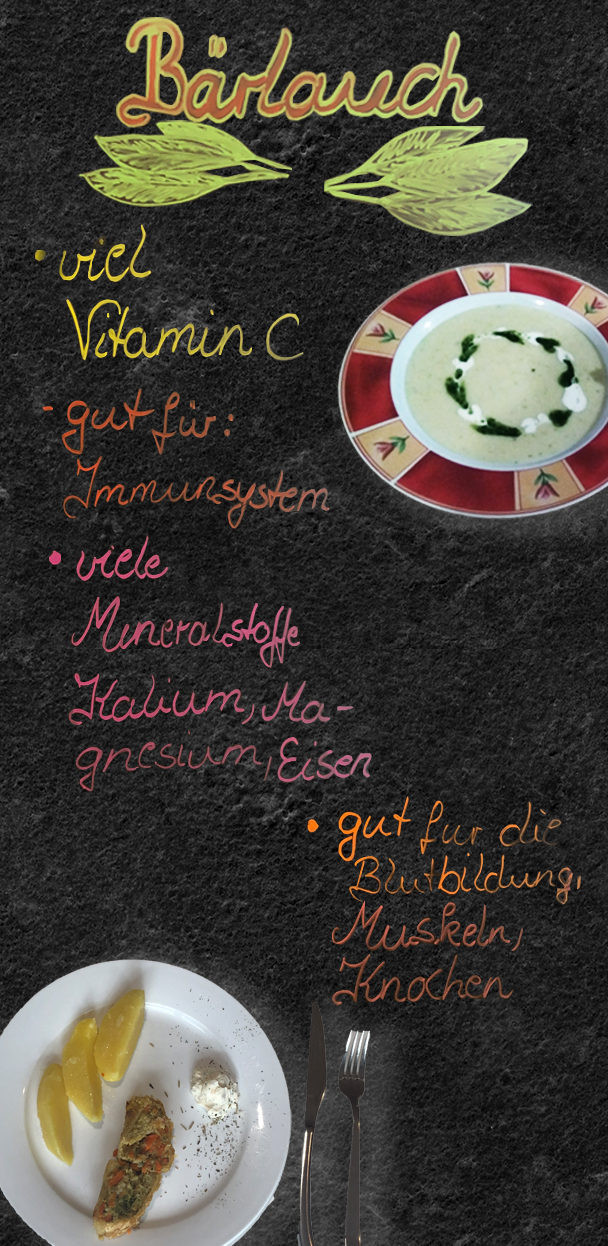 Bärlauch
• viel
Vitamin C
- gut für:
Immunsystem
• viele
Mineralstoffe
Kalium, Ma-
gnesium, Eisen
• gut für die
Blutbildung,
Muskeln,
Knochen